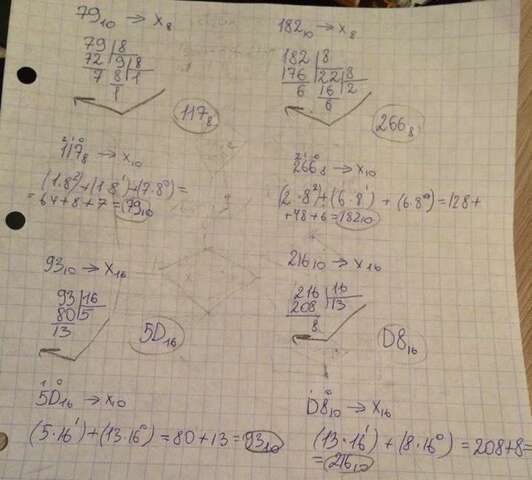 79₁₀ → x₈
79 |8
72 |9 |8
7 8 |1
1
117₈
182₁₀ → x₈
182 |8
176 |22 |8
6 16 |2
6
266₈
2 1 0
117₈ → x₁₀
(1·8²)+(1·8¹)+(7·8⁰)=
=64+8+7=79₁₀
2 1 0
266₈ → x₁₀
(2·8²)+(6·8¹)+(6·8⁰)=128+
+48+6=182₁₀
93₁₀ → x₁₆
93 |16
80 |5
13
5D₁₆
216₁₀ → x₁₆
216 |16
208 |13
8
D8₁₆
1 0
5D₁₆ → x₁₀
(5·16¹)+(13·16⁰)=80+13=93₁₀
1 0
D8₁₀ → x₁₆
(13·16¹)+(8·16⁰)=208+8=
=216₁₀